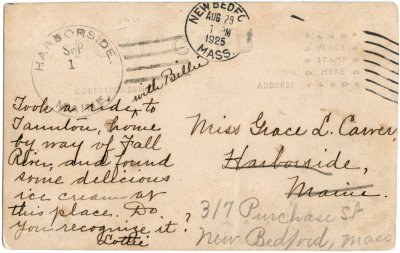 HARBORSIDE
SEP
1
MAINE
NEW BEDFO
AUG 29
1 PM
1925
MASS.
PLACE
STAMP
HERE
CORRESPONDENCE
ADDRESS
Took a ride ^ with Billie to
Taunton, home
by way of Fall
River, and found
some delicious
ice cream at
this place. Do
you recognize it?
Lottie
Miss Grace L. Carver,
Harborside,
Maine.
317 Purchase St
New Bedford, Mass